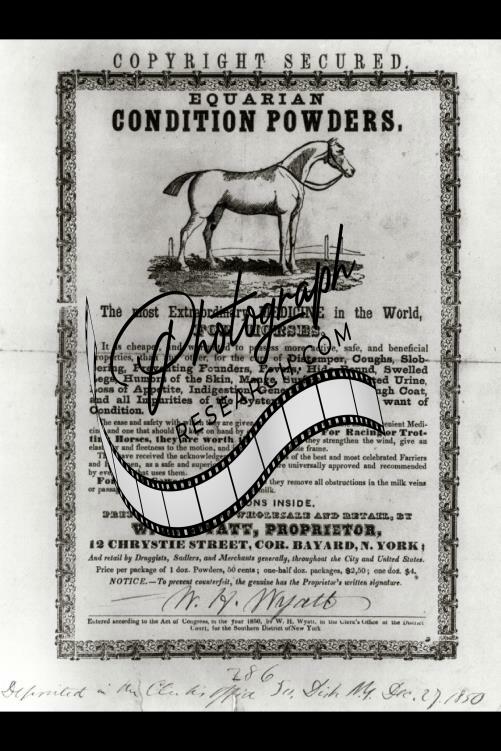 COPYRIGHT SECURED.
EQUARIAN
CONDITION POWDERS.
The most Extraordinary MEDICINE in the World,
FOR HORSES.
It is cheaper, and to possess more active, safe, and beneficial
properties, than other, for the cure of Distemper, Coughs, Slob-
bering, Founders, Fevers, Hide Bound, Swelled
Legs, Humor of the Skin, Mange, Urine,
Loss of Appetite, Indigestion, Coat,
and all Impurities of the System want of
Condition.
The ease and safety with they are given Medi-
cine and one that should kept on hand by For Racing or Trot-
ting Horses, they are worth they strengthen the wind, give an
elasticity and fleetness to the motion, and frame.
have received the of the best and most celebrated Farriers
and as a safe and are universally approved and recommended
by uses them.
they remove all obstructions in the milk veins
or milk.
INSIDE.
WHOLESALE AND RETAIL, BY
WYATT, PROPRIETOR,
12 CHRYSTIE STREET, COR. BAYARD, N. YORK;
And retail by Druggists, Sadlers, and Merchants generally, throughout the City and United States.
Price per package of 1 doz. Powders, 50 cents; one-half doz. packages, $2,50; one doz. $4.
NOTICE.—To prevent counterfeit, the genuine has the Proprietor's written signature.
W. H. Wyatt
Entered according to the Act of Congress, in the year 1850, by W. H. Wyatt, in the Clerk's Office of the District
Court, for the Southern District of New York
286
Deposited in the Clerks Office So. Dist. N.Y. Dec. 27. 1850
Photograph
RESEARCH.COM